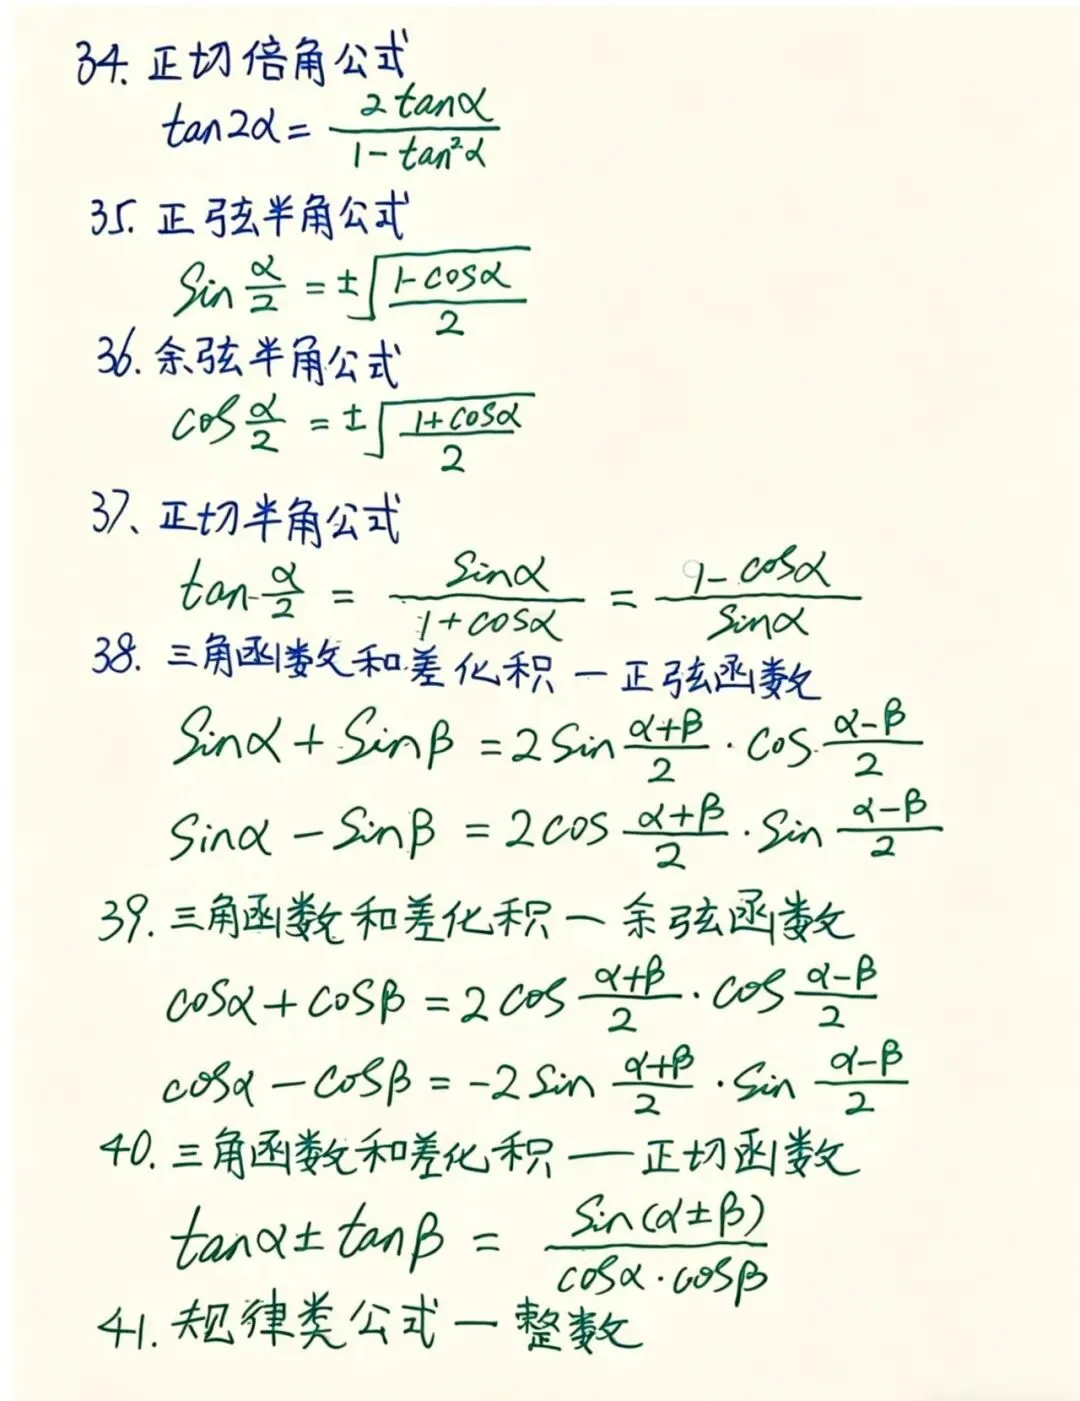 34. 正切倍角公式
tan2α = 2tanα / 1 - tan²α
35. 正弦半角公式
Sin α/2 = ±√(1-cosα / 2)
36. 余弦半角公式
cos α/2 = ±√(1+cosα / 2)
37、正切半角公式
tan α/2 = Sinα / 1+cosα = 1-cosα / Sinα
38. 三角函数和差化积一正弦函数
Sinα + Sinβ = 2Sin α+β/2 · cos α-β/2
Sinα - Sinβ = 2cos α+β/2 · Sin α-β/2
39. 三角函数和差化积一余弦函数
cosα + cosβ = 2cos α+β/2 · cos α-β/2
cosα - cosβ = -2Sin α+β/2 · Sin α-β/2
40. 三角函数和差化积—正切函数
tanα ± tanβ = Sin(α±β) / cosα·cosβ
41. 规律类公式一整数